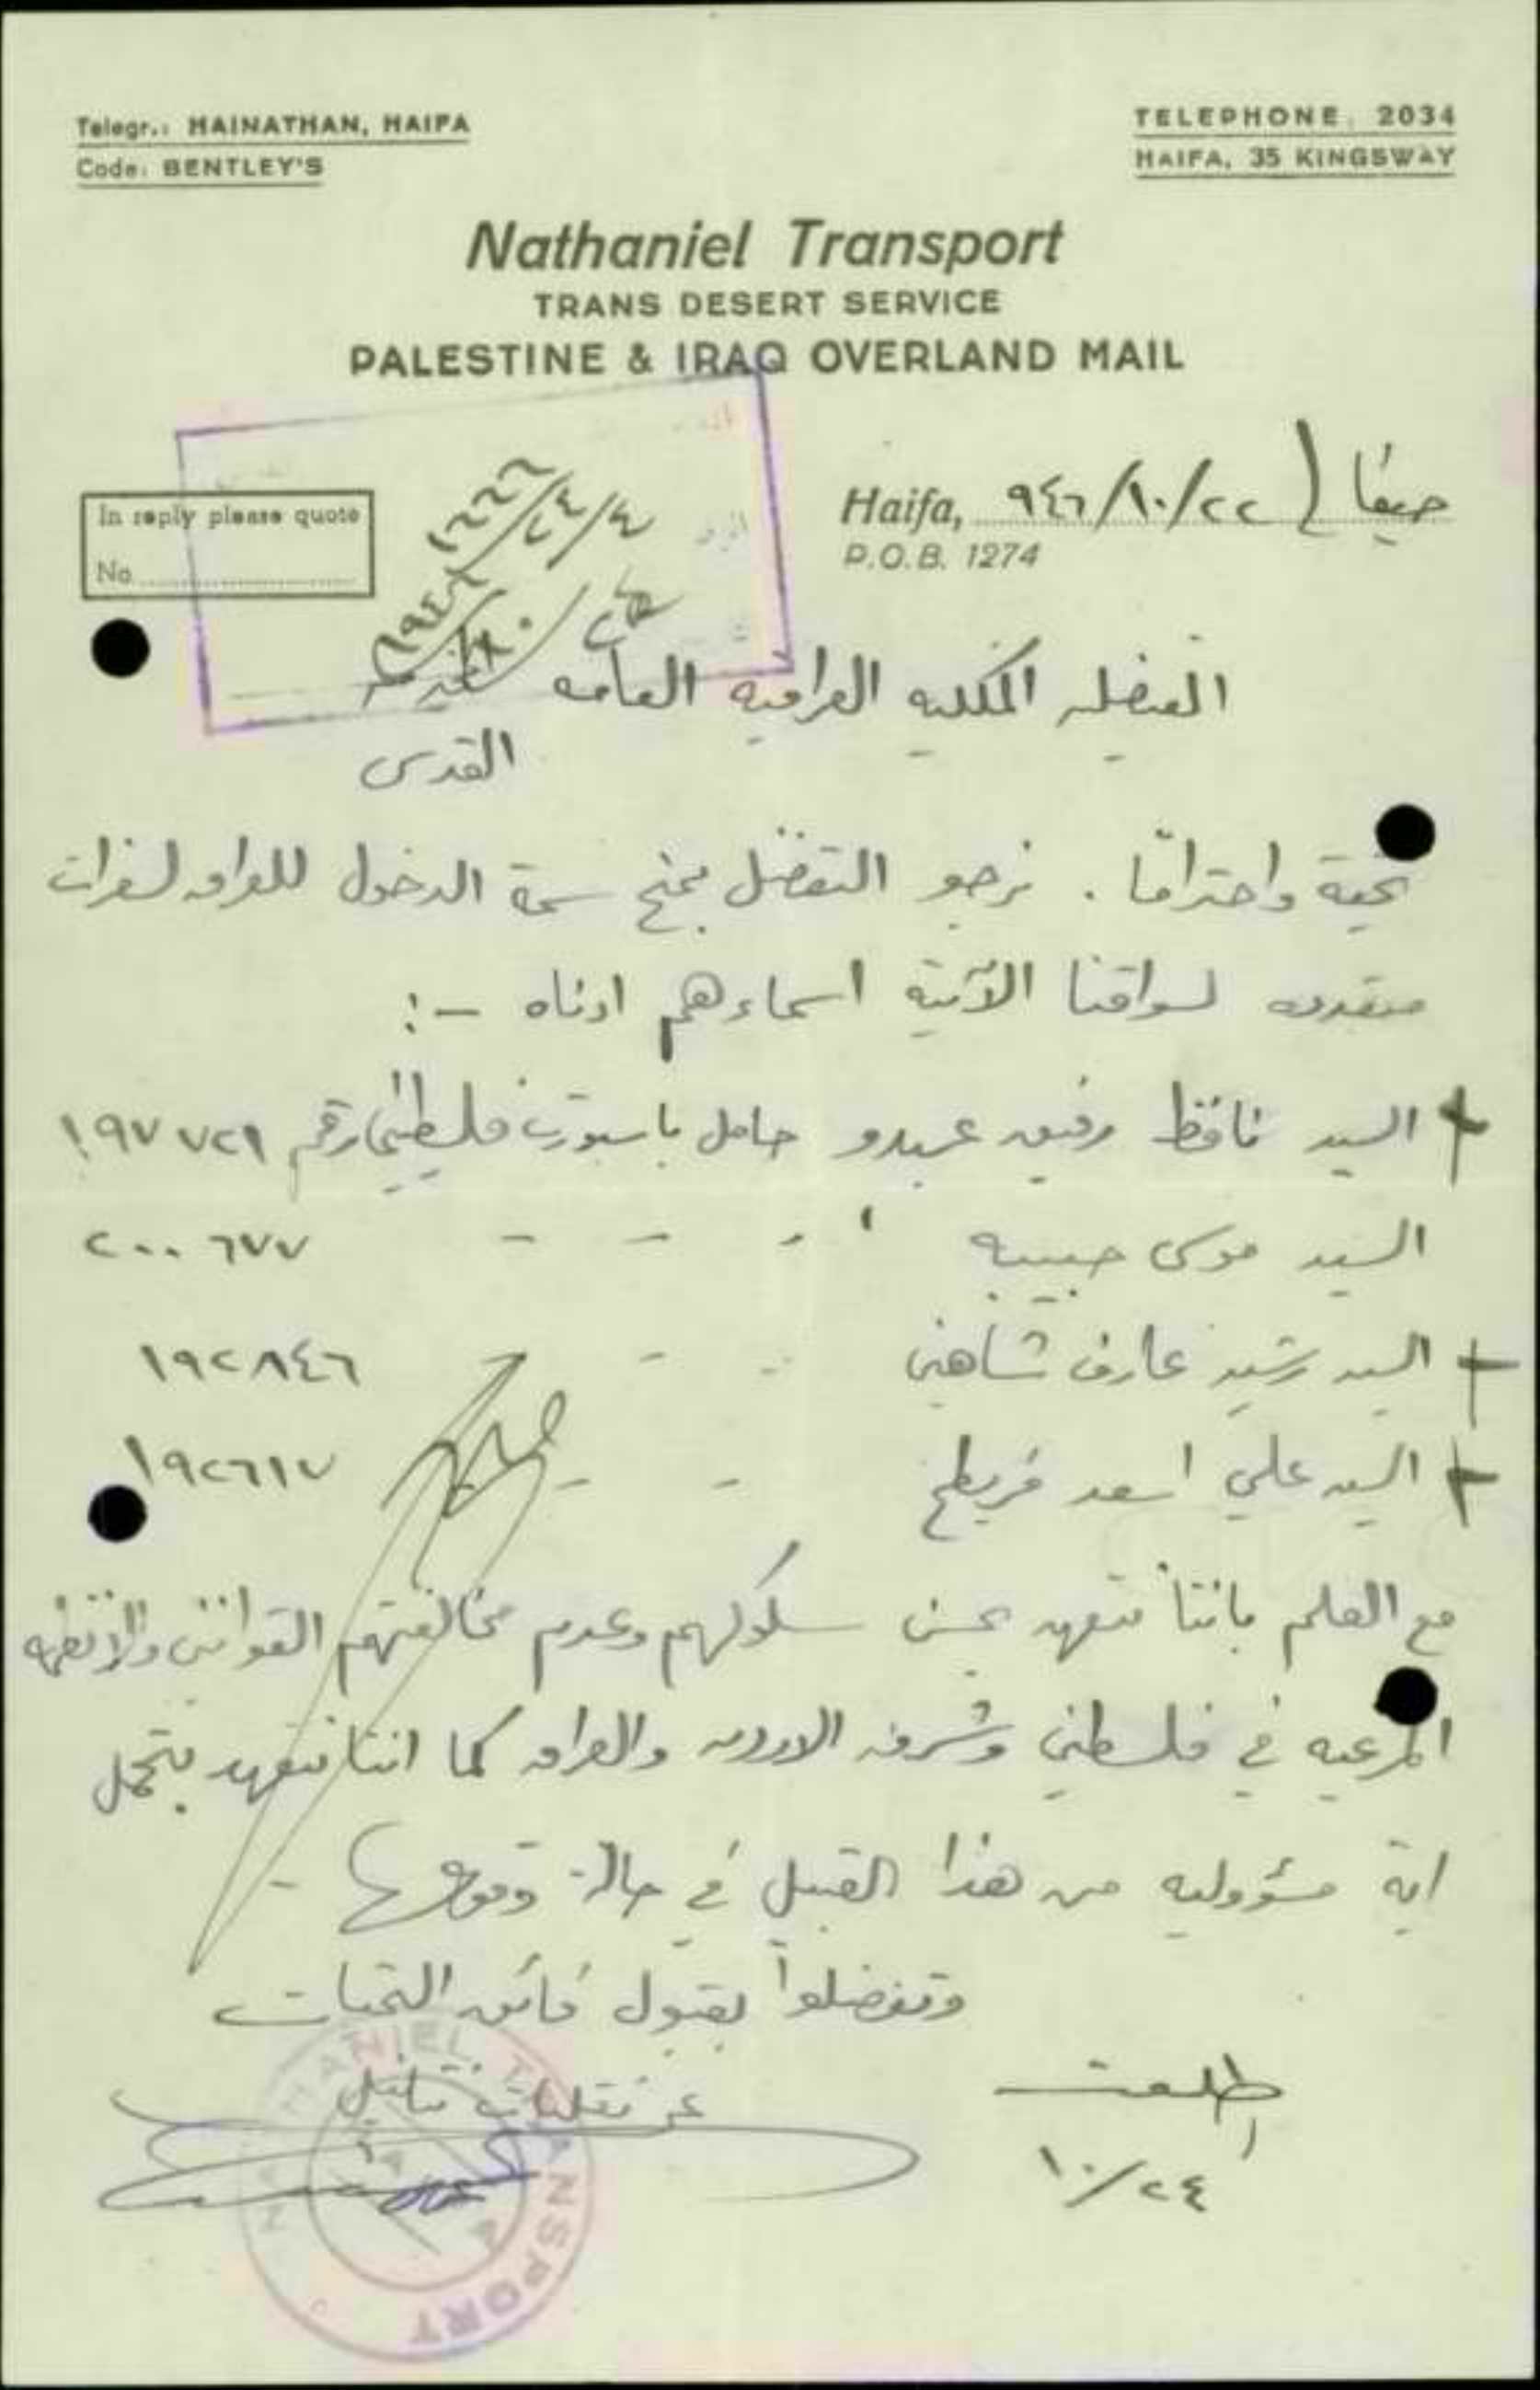 Telegr.: HAINATHAN, HAIFA
Code: BENTLEY'S
TELEPHONE: 2034
HAIFA, 35 KINGSWAY
Nathaniel Transport
TRANS DESERT SERVICE
PALESTINE & IRAQ OVERLAND MAIL
In reply please quote
No
حيفا ( Haifa, ٩٤٦/١٠/٢٢
P.O.B. 1274
١٢٢٦
٤/٢٤/
٢٤
١٩٤٦/١٠/
القنصليه الملكيه العراقيه العامه
القدس
تحية واحتراما . نرجو التفضل بمنح سمة الدخول للعراق لسفرات
متعدده لسواقنا الآتية اسماءهم ادناه -:
+ السيد نافظ رفيق عبدو حامل باسبورت فلسطيني رقم ١٩٧٧٢٩
السيد موسى حبيبه - - - ٢٠٠٦٧٧
+ السيد رشيد عارف شاهين - - ١٩٢٨٤٦
+ السيد علي اسعد قريطم - - ١٩٢٦١٧
مع العلم باننا نتعهد بحسن سلوكهم وعدم مخالفتهم القوانين والانظمه
المرعيه في فلسطين وشرق الاردن والعراق كما اننا نتعهد بتحمل
اية مسؤوليه من هذا القبيل في حالة وقوعها -
وتفضلوا بقبول فائق التحيات
عن نقليات نتانيل
اطلعت
١٠/٢٤
NATHANIEL TRANSPORT